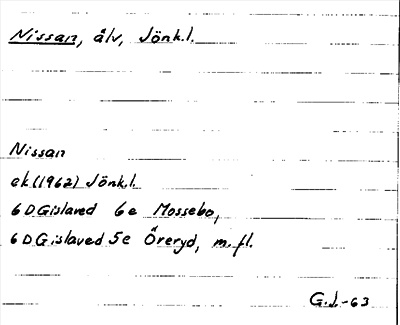 Nissan, älv, Jönk.l.
Nissan
ek(1962) Jönk.l.
6D Gislaved 6e Mossebo,
6D Gislaved 5e Öreryd, m.fl.
G.J.-63